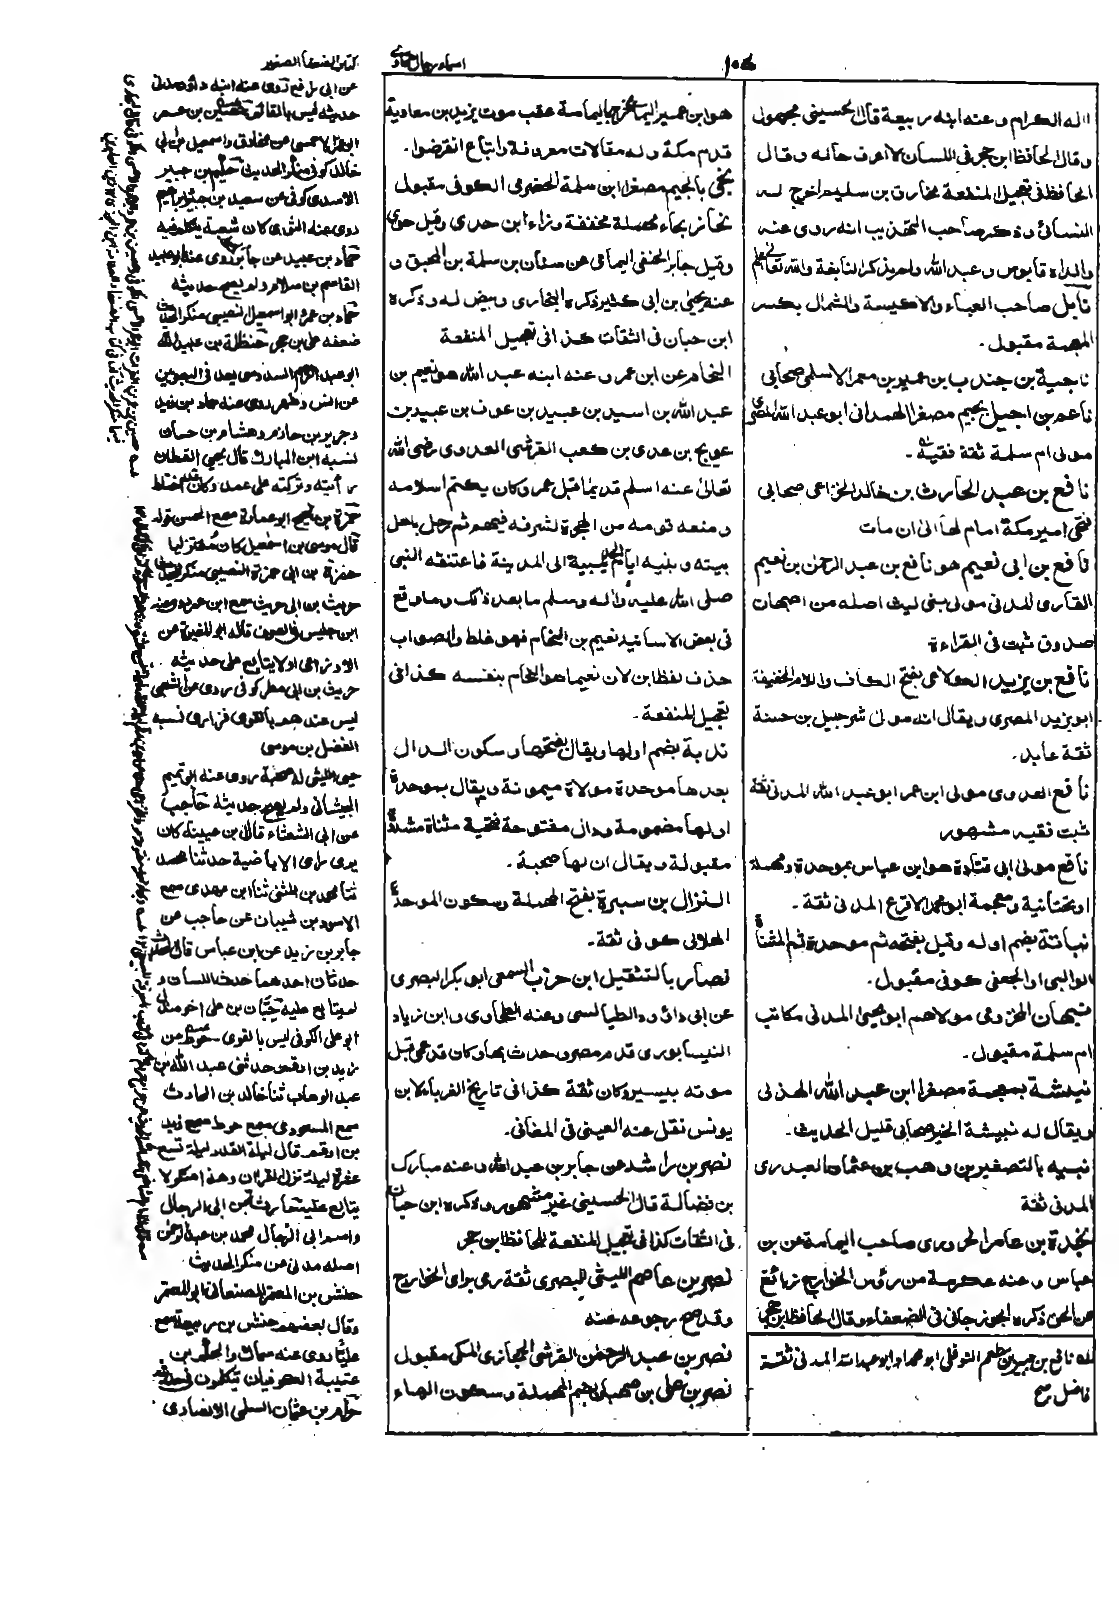 ١٠٤
اسماء رجال طحاوى
كتاب الضعفاء الصغير
اله الكرام وعنه ابنه ربيعة قال الحسينى مجهول
وقال الحافظ ابن حجر فى اللسان لا اعرف حاله وقال
الحافظ فى تعجيل المنفعة مخارق بن سليم اخرج له
النسائى وذكر صاحب التهذيب انه روى عنه
والداه قابوس وعبد الله ولم يذكر النابغة والله تعالى اعلم
نابل صاحب العباء والاكيسة والشمال بكسر
المعجمة مقبول.
ناجية بن جندب بن عمير بن معمر الاسلمى صحابى
ناعم بن اجيل بجيم مصغرا الهمدانى ابو عبد الله المصرى
مولى ام سلمة ثقة فقيه.
نافع بن عبد الحارث بن خالد الخزاعى صحابى
فتحى امير مكة اقام لها الى ان مات
نافع بن ابى نعيم هو نافع بن عبد الرحمن بن نعيم
القارى المدنى مولى بنى ليث اصله من اصبهان
صدوق ثبت فى القراءة
نافع بن يزيد الكلاعى بفتح الكاف واللام الخفيفة
ابو يزيد المصرى ويقال انه مولى شرحبيل بن حسنة
ثقة عابد.
نافع العدوى مولى ابن عمر ابو عبد الله المدنى ثقة
ثبت فقيه مشهور
نافع مولى ابى قتادة هو ابن عباس بموحدة ومهملة
او بتحتانية ومعجمة ابو محمد الاقرع المدنى ثقة.
نباتة بضم اوله وقيل بفتحه ثم موحدة ثم المثناة
الوالبى او الجعفى كوفى مقبول.
نبهان المخزومى مولاهم ابو يحيى المدنى مكاتب
ام سلمة مقبول.
نبيشة بمعجمة مصغرا ابن عبد الله الهذلى
ويقال له نبيشة الخير صحابى قليل الحديث.
نبيه بالتصغير بن وهب بن عثمان العبدرى
المدنى ثقة
نجدة بن عامر الحرورى صاحب اليمامة عن بن
عباس وعنه عكرمة من رؤس الخوارج زائغ
عن الحق ذكره الجوزجانى فى الضعفاء وقال الحافظ ابن حجر
له نافع بن جبير بن مطعم النوفلى ابو محمد وابو عبد الله المدنى ثقة
فاضل رح
هو ابن عمير اليمامى خرج باليمامة عقب موت يزيد بن معاوية
قدم مكة وله مقالات معروفة واتباع انقرضوا.
نجى بالجيم مصغرا ابن سلمة الحضرمى الكوفى مقبول
نحاز بحاء مهملة مخففة وزاء ابن جدى وقيل حوى
وقيل جابر الحنفى اليمامى عن سنان بن سلمة بن المحبق و
عنه يحيى بن ابى كثير ذكره البخارى وبيض له وذكره
ابن حبان فى الثقات كذا فى تعجيل المنفعة
النحام عن ابن عمر وعنه ابنه عبد الله هو نعيم بن
عبد الله بن اسيد بن عبيد بن عوف بن عبيد بن
عويج بن عدى بن كعب القرشى العدوى رضى الله
تعالى عنه اسلم قديما قبل عمر وكان يكتم اسلامه
ومنعه قومه من الهجرة لشرفه فيهم ثم رحل باهل
بيته وبنيه ايام الحديبية الى المدينة فاعتنقه النبى
صلى الله عليه واله وسلم ما بعد ذلك وما وقع
فى بعض الاسانيد نعيم بن النحام فهو غلط والصواب
حذف لفظ ابن لان نعيما هو النحام بنفسه كذا فى
تعجيل المنفعة.
ندبة بضم اولها ويقال بفتحها وسكون الدال
بعدها موحدة مولاة ميمونة ويقال بموحدة
اولها مضمومة ودال مفتوحة تحتية مثناة مشددة
مقبولة ويقال ان لها صحبة.
النزال بن سبرة بفتح المهملة وسكون الموحدة
الهلالى كوفى ثقة.
نصار بالتثقيل ابن حرب السمعى ابو بكر البصرى
عن ابى داؤد الطيالسى وعنه الطحاوى وابن زياد
النيسابورى قدم مصر وحدث بها وكان قدمى قبل
موته بيسير وكان ثقة كذا فى تاريخ الغرباء لابن
يونس نقل عنه العينى فى المغانى.
نصر بن راشد عن جابر بن عبد الله وعنه مبارك
بن فضالة قال الحسينى غير مشهور وذكره ابن حبان
فى الثقات كذا فى تعجيل المنفعة للحافظ ابن حجر
نصر بن عاصم الليثى البصرى ثقة رمى براى الخوارج
وقد صح رجوعه عنه
نصر بن عبد الرحمن القرشى الحجازى المكى مقبول
نصر بن على بن صهبان بضم المهملة وسكون الهاء
عن ابى رافع روى عنه ابنه داؤد مدنى
حديثه ليس بالقائم حصين بن عمر
ابو عمر الاحمسى عن مخارق واسمعيل بن ابى
خالد كوفى منكر الحديث حكيم بن جبير
الاسدى كوفى عن سعيد بن جبير وابراهيم
روى عنه الثورى كان شعبة يتكلم فيه
حماد بن عبيد عن جابر روى عنه ابو عبيد
القاسم بن سلام ولم يصح حديثه
حماد بن عمرو ابو اسمعيل النصيبى منكر الحديث
ضعفه على بن حجر حنظلة بن عبيد الله
ابو عبد الرحيم السدوسى يعد فى البصريين
عن انس وشهر روى عنه حماد بن زيد
وجرير بن حازم وهشام بن حسان
نسبه ابن المبارك قال يحيى القطان
رأيته وتركته على عمد وكان قد اختلط
حمزة بن نجيح ابو عمارة سمع الحسن قوله
قال موسى بن اسمعيل كان معتزليا
حمزة بن ابى حمزة النصيبى منكر الحديث
حريث بن ابى حريث سمع ابن عمر روى عنه
ابن حليس فى الصرف قاله ابو المغيرة عن
الاوزاعى اولا يتابع على حديثه
حريث بن ابى مطر كوفى روى عن الشعبى
ليس عندهم بالقوى فزارى نسبه
الفضل بن موسى
حيى الليثى له صحبة روى عنه ابو تميم
الجيشانى ولم يصح حديثه حاجب
عن ابى الشعثاء قال بن عيينة كان
يرى راى الاباضية حدثنا محمد
ثنا محمد بن المثنى ثنا ابن مهدى سمع
الاسود بن شيبان عن حاجب عن
جابر بن زيد عن ابن عباس قال الحدث
حدثان احدهما حدث اللسان و
لم يتابع عليه حبان بن على اخو مندل
ابو على الكوفى ليس بالقوى حوط عن
زيد بن ارقم حدثنى عبد الله بن
عبد الوهاب ثنا خالد بن الحارث
سمع المسعودى سمع حوط سمع زيد
بن ارقم قال ليلة القدر ليلة تسع
عشرة ليلة نزل القران وهذا منكر لا
يتابع عليه حارثة بن ابى الرجال
واسم ابى الرجال محمد بن عبد الرحمن
اصله مدنى عن منكر الحديث
حنش بن المعتمر الصنعانى ابو المعتمر
وقال بعضهم حنش بن ربيعة سمع
عليا روى عنه سماك والحكم بن
عتيبة الكوفيان يتكلمون فى حديثه
حرام بن عثمان السلمى الانصارى